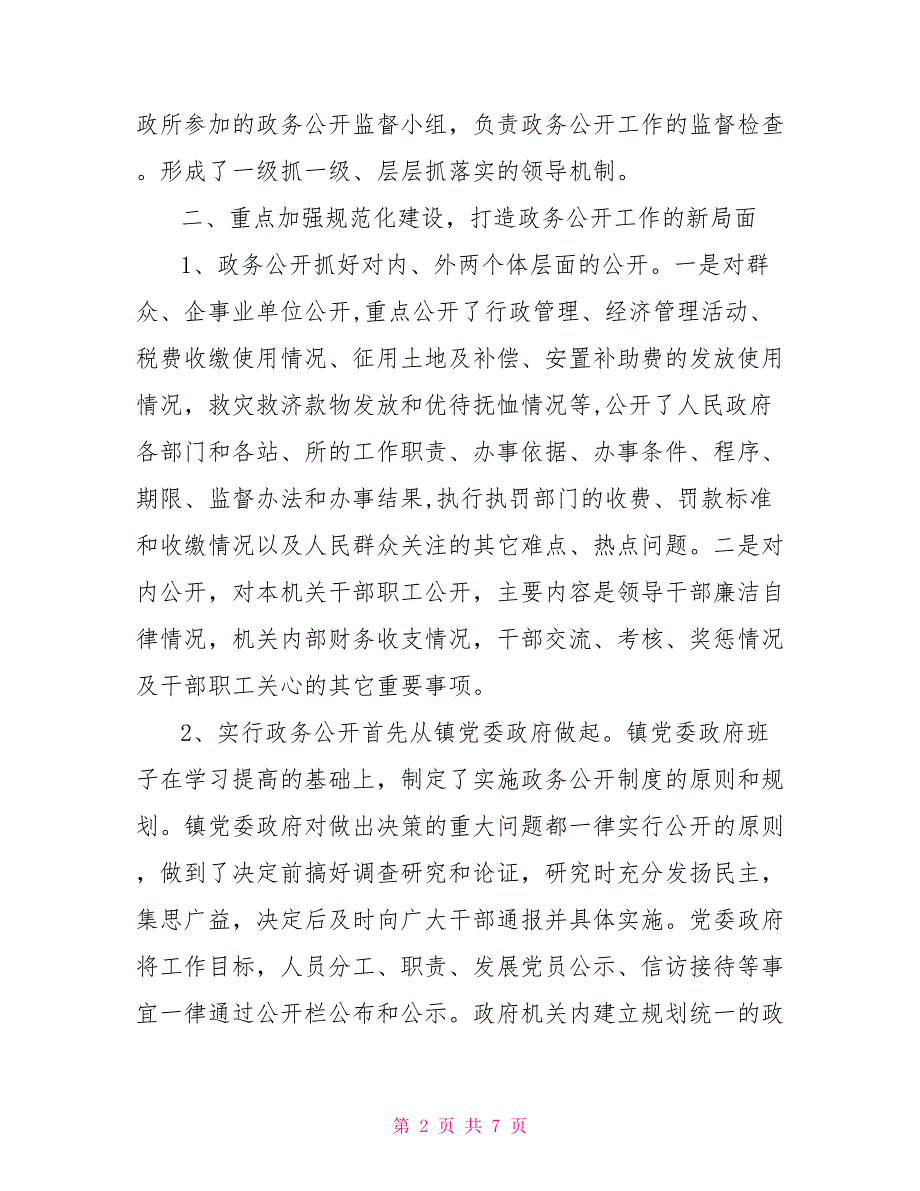 政所参加的政务公开监督小组，负责政务公开工作的监督检查
。形成了一级抓一级、层层抓落实的领导机制。
二、重点加强规范化建设，打造政务公开工作的新局面
1、政务公开抓好对内、外两个体层面的公开。一是对群
众、企事业单位公开,重点公开了行政管理、经济管理活动、
税费收缴使用情况、征用土地及补偿、安置补助费的发放使用
情况，救灾救济款物发放和优待抚恤情况等,公开了人民政府
各部门和各站、所的工作职责、办事依据、办事条件、程序、
期限、监督办法和办事结果,执行执罚部门的收费、罚款标准
和收缴情况以及人民群众关注的其它难点、热点问题。二是对
内公开，对本机关干部职工公开，主要内容是领导干部廉洁自
律情况，机关内部财务收支情况，干部交流、考核、奖惩情况
及干部职工关心的其它重要事项。
2、实行政务公开首先从镇党委政府做起。镇党委政府班
子在学习提高的基础上，制定了实施政务公开制度的原则和规
划。镇党委政府对做出决策的重大问题都一律实行公开的原则
，做到了决定前搞好调查研究和论证，研究时充分发扬民主，
集思广益，决定后及时向广大干部通报并具体实施。党委政府
将工作目标，人员分工、职责、发展党员公示、信访接待等事
宜一律通过公开栏公布和公示。政府机关内建立规划统一的政
第 2 页 共 7 页